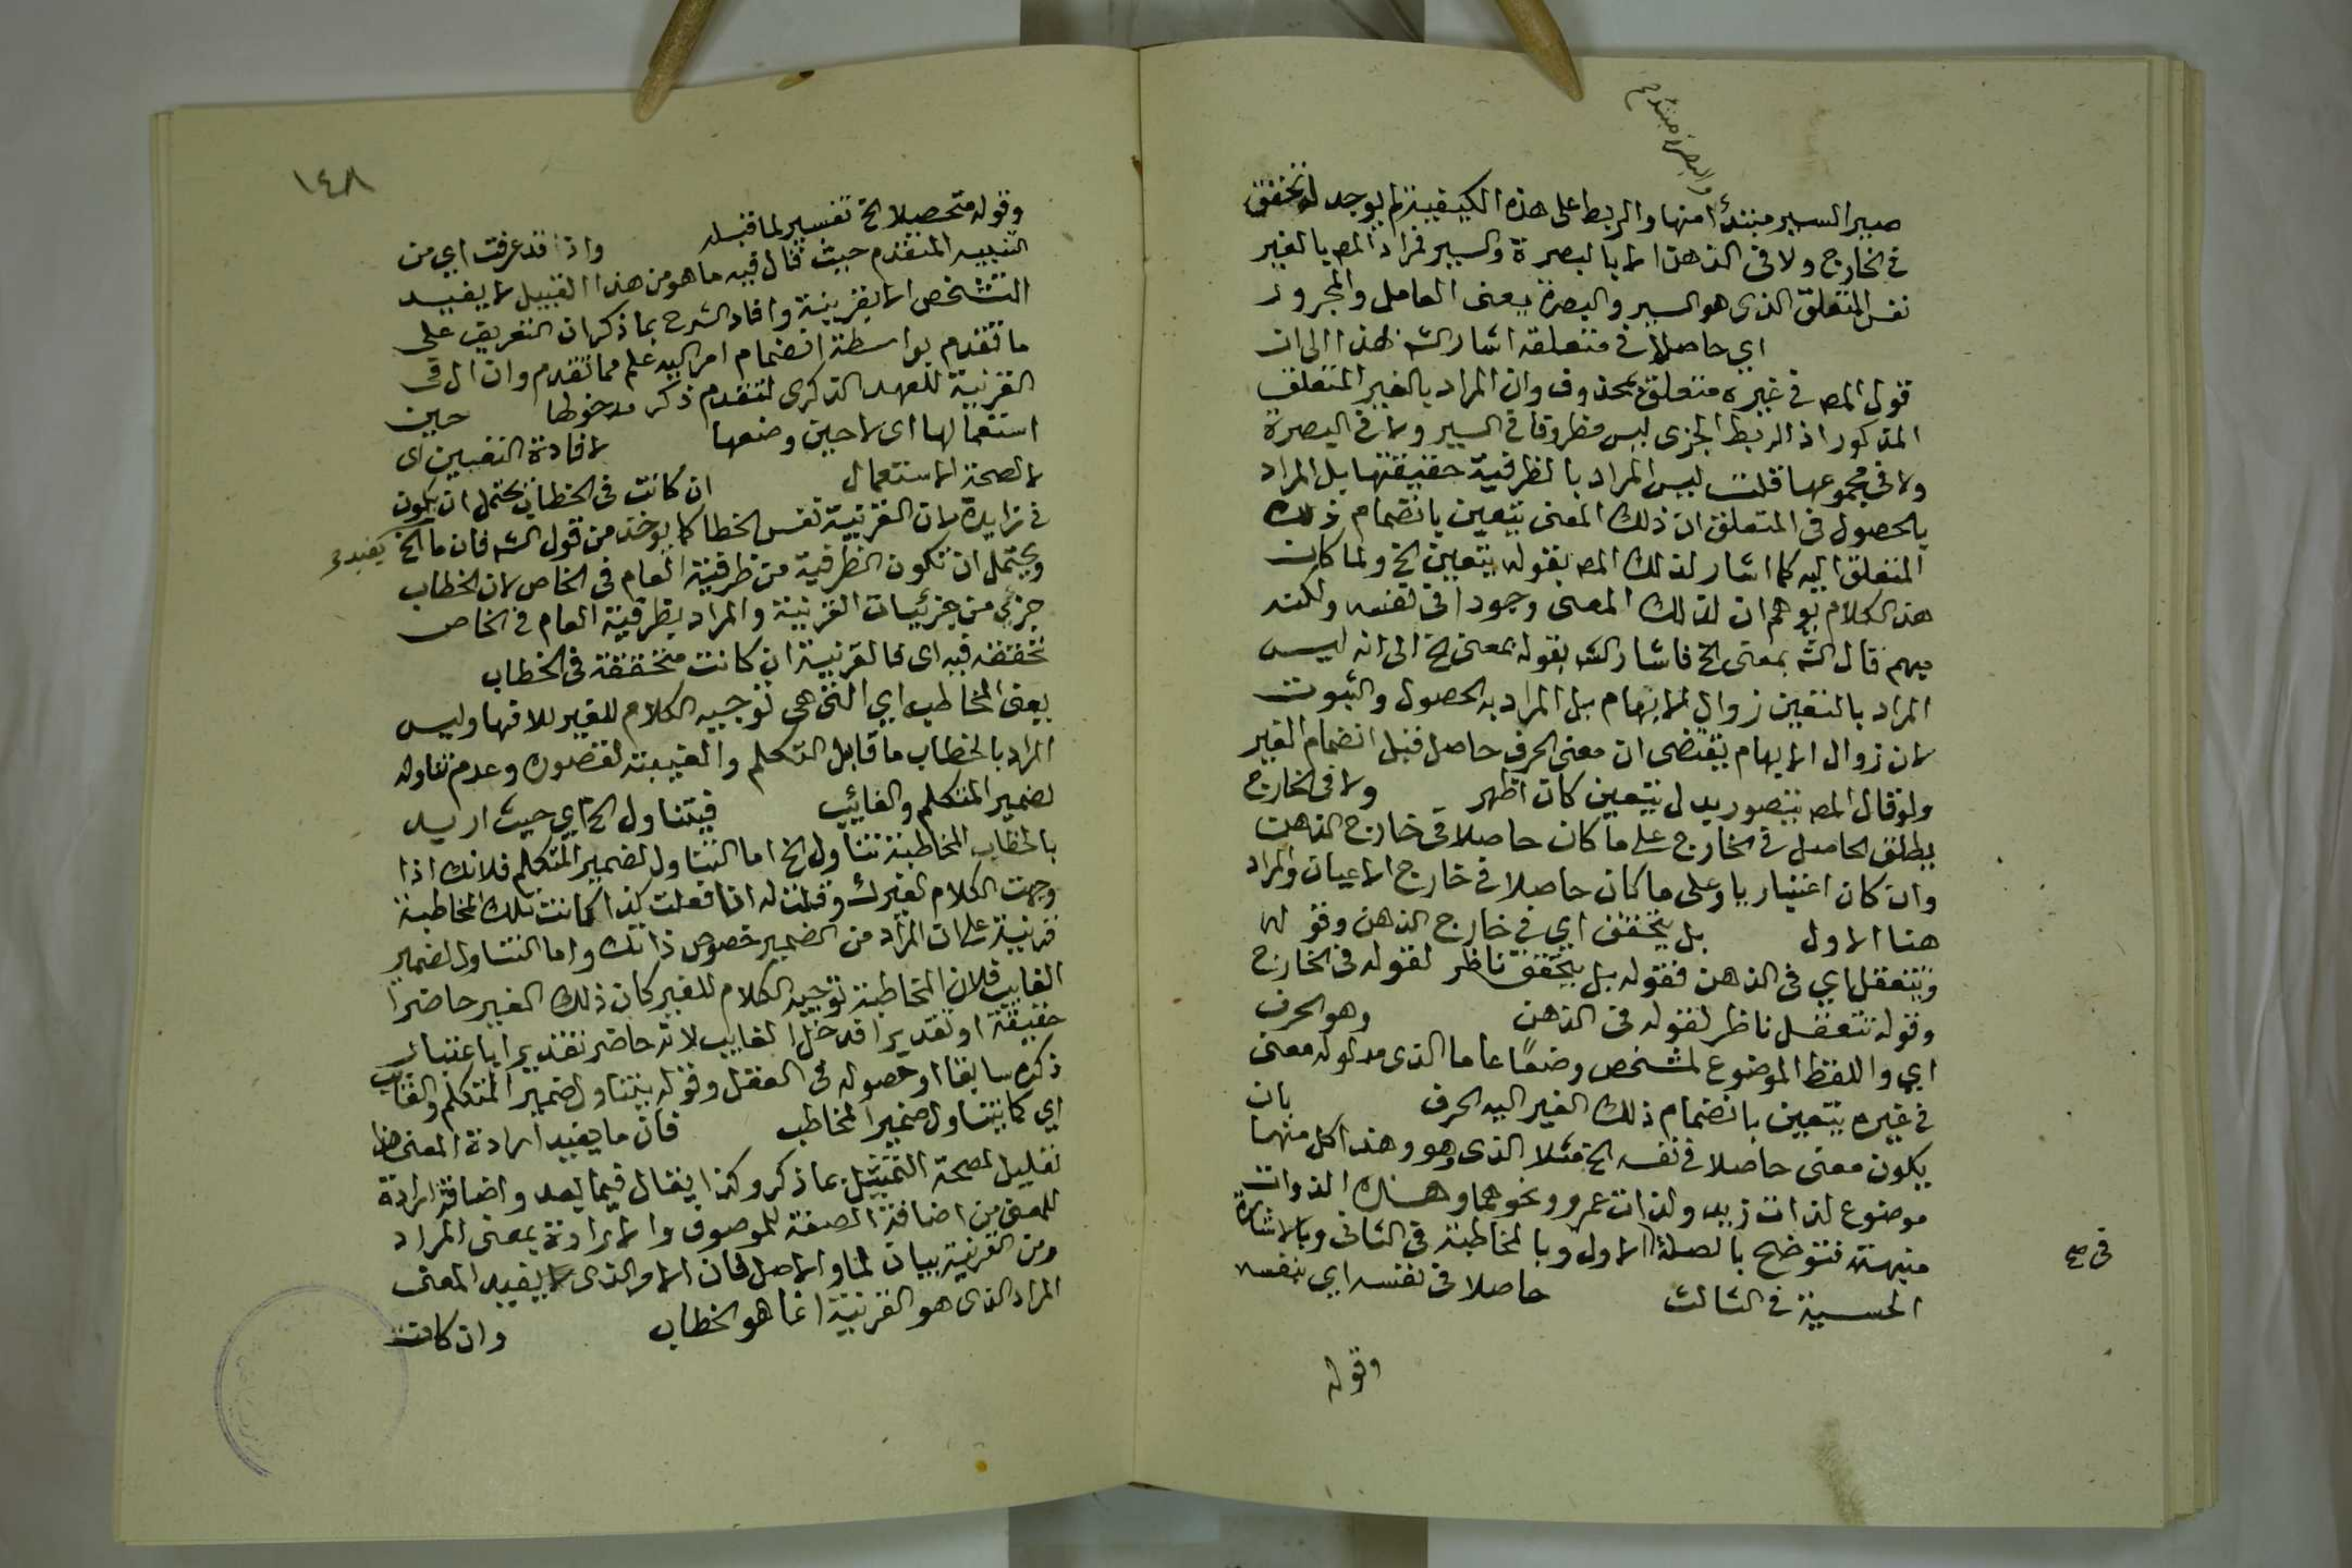 والبصرة مبتدؤ
صير السير مبتدأ منها والربط على هذه الكيفية لم يوجد له تحقق
في الخارج ولا في الذهن الا بالبصرة والسير فمراد المص بالغير
نفس المتعلق الذي هو السير والبصرة يعني العامل والمجرور
اي حاصلا في متعلقه اشار الش بهذا الى ان
قول المص في غيره متعلق بمحذوف وان المراد بالغير المتعلق
المذكور اذ الربط الجزى ليس مظروفا في السير ولا في البصرة
ولا في مجموعها قلت ليس المراد بالظرفية حقيقتها بل المراد
بالحصول في المتعلق ان ذلك المعنى يتعين بانضمام ذلك
المتعلق اليه كما اشار لذلك المص بقوله يتعين الخ ولما كان
هذا الكلام يوهم ان لذلك المعنى وجودا في نفسه ولكنه
مبهم قال الش بمعنى الخ فاشار الش بقوله بمعنى الخ الى انه ليس
المراد بالتعين زوال الابهام بل المراد به الحصول والثبوت
لان زوال الابهام يقتضى ان معنى الحرف حاصل قبل انضمام الغير
ولو قال المص يتصور بدل يتعين كان اظهر ولا في الخارج
يطلق الحاصل في الخارج على ما كان حاصلا في خارج الذهن
وان كان اعتباريا وعلى ما كان حاصلا في خارج الاعيان والمراد
هنا الاول بل يتحقق اي في خارج الذهن وقوله
ويتعقل اي في الذهن فقوله بل يتحقق ناظر لقوله في الخارج
وقوله يتعقل ناظر لقوله في الذهن وهو الحرف
اي واللفظ الموضوع لمشخص وضعًا عاما الذي مدلوله معنى
في غيره يتعين بانضمام ذلك الغير اليه الحرف بان
يكون معنى حاصلا في نفسه الخ مثلا الذي وهو وهذا كل منها
موضوع لذات زيد ولذات عمرو ونحوهما وهناك الذوات
مبهمة فتتوضح بالصلة الاول وبالمخاطبة في الثاني وبالاشارة
في صح
الحسية في الثالث حاصلا في نفسه اي بنفسه
وقوله
١٤٨
وقوله متحصلا الخ تفسير لما قبله واذ قد عرفت اي من
التنبيه المتقدم حيث قال فيه ما هو من هذا القبيل لا يفيد
التشخص الا بقرينة وافاد الشرح بما ذكر ان التعريف على
ما تقدم بواسطة انضمام امر اليه علم مما تقدم وان ال في
القرينة للعهد الذكرى لتقدم ذكر مدخولها حين
استعمالها اي لا حين وضعها لافادة التعيين اي
لا لصحة الاستعمال ان كانت في الخطاب يحتمل ان يكون
في زايدة لان القرينة نفس الخطا كما يوخذ من قول الش فان ما الخ يفيد
ويحتمل ان تكون الظرفية من ظرفية العام في الخاص لان الخطاب
جزئي من جزئيات القرينة والمراد بظرفية العام في الخاص
تحققه فيه اي فالقرينة ان كانت متحققة في الخطاب
يعني المخاطب اي التي هي توجيه الكلام للغير وليس
المراد بالخطاب ما قابل التكلم والغيبة لقصوره وعدم تناوله
لضمير المتكلم والغائب فيتناول الخ اي حيث اريد
بالخطاب المخاطبة تتناول الخ اما التناول لضمير المتكلم فلانك اذا
وجهت الكلام لغيرك وقلت له انا فعلت كذا كانت تلك المخاطبة
قرينة على ان المراد من الضمير خصوص ذاتك واما التناول لضمير
الغايب فلان المخاطبة توجيه الكلام للغير كان ذلك الغير حاضرا
حقيقة او تقديرا فدخل الغايب لانه حاضر تقديرا باعتبار
ذكره سابقا او حصوله في العقل وقوله يتناول ضمير المتكلم والغايب
اي كما يتناول ضمير المخاطب فان ما يفيد ارادة المعنى
تعليل لصحة التمثيل بما ذكر وكذا يقال فيما بعد واضافة ارادة
للمعنى من اضافة الصفة للموصوف والارادة بمعنى المراد
ومن القرينة بيان لما والاصل فان الامر الذي يفيد المعنى
المراد الذي هو القرينة انما هو الخطاب وان كانت